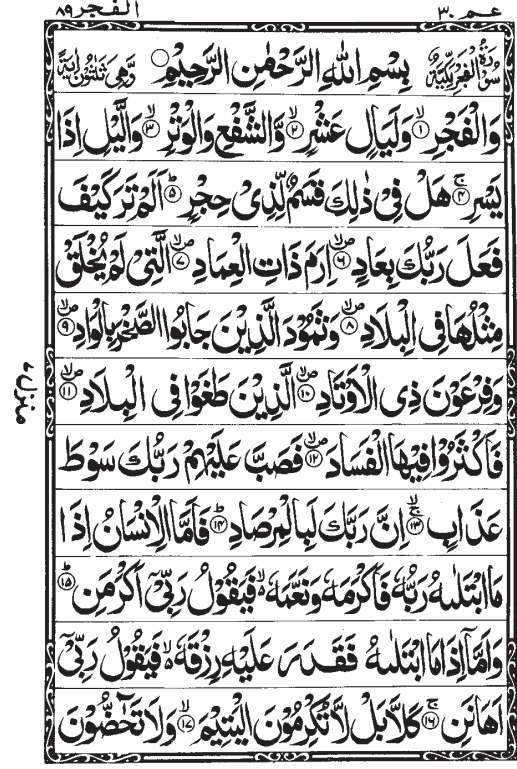 عم ٣٠ الفجر ٨٩
سُوْرَةُ الْفَجْرِ مَكِّيَّةٌ بِسْمِ اللّٰهِ الرَّحْمٰنِ الرَّحِيْمِ وَّهِىَ ثَلٰثُوْنَ اٰيَةً
وَالْفَجْرِ ۙ﴿۱﴾ وَلَيَالٍ عَشْرٍ ۙ﴿۲﴾ وَّالشَّفْعِ وَالْوَتْرِ ۙ﴿۳﴾ وَالَّيْلِ اِذَا
يَسْرِ ۚ﴿۴﴾ هَلْ فِىْ ذٰلِكَ قَسَمٌ لِّذِىْ حِجْرٍ ؕ﴿۵﴾ اَلَمْ تَرَ كَيْفَ
فَعَلَ رَبُّكَ بِعَادٍ ۙ﴿۶﴾ اِرَمَ ذَاتِ الْعِمَادِ ۙ﴿۷﴾ الَّتِىْ لَمْ يُخْلَقْ
مِثْلُهَا فِى الْبِلَادِ ۙ﴿۸﴾ وَثَمُوْدَ الَّذِيْنَ جَابُوا الصَّخْرَ بِالْوَادِ ۙ﴿۹﴾
وَفِرْعَوْنَ ذِى الْاَوْتَادِ ۙ﴿۱۰﴾ الَّذِيْنَ طَغَوْا فِى الْبِلَادِ ۙ﴿۱۱﴾
فَاَكْثَرُوْا فِيْهَا الْفَسَادَ ۙ﴿۱۲﴾ فَصَبَّ عَلَيْهِمْ رَبُّكَ سَوْطَ
عَذَابٍ ۚۙ﴿۱۳﴾ اِنَّ رَبَّكَ لَبِالْمِرْصَادِ ؕ﴿۱۴﴾ فَاَمَّا الْاِنْسَانُ اِذَا
مَا ابْتَلٰىهُ رَبُّهٗ فَاَكْرَمَهٗ وَنَعَّمَهٗ ۙ فَيَقُوْلُ رَبِّىْٓ اَكْرَمَنِ ؕ﴿۱۵﴾
وَاَمَّاۤ اِذَا مَا ابْتَلٰىهُ فَقَدَرَ عَلَيْهِ رِزْقَهٗ ۙ فَيَقُوْلُ رَبِّىْٓ
اَهَانَنِ ۚ﴿۱۶﴾ كَلَّا بَلْ لَّا تُكْرِمُوْنَ الْيَتِيْمَ ۙ﴿۱۷﴾ وَلَا تَحٰٓضُّوْنَ
منزل ۷